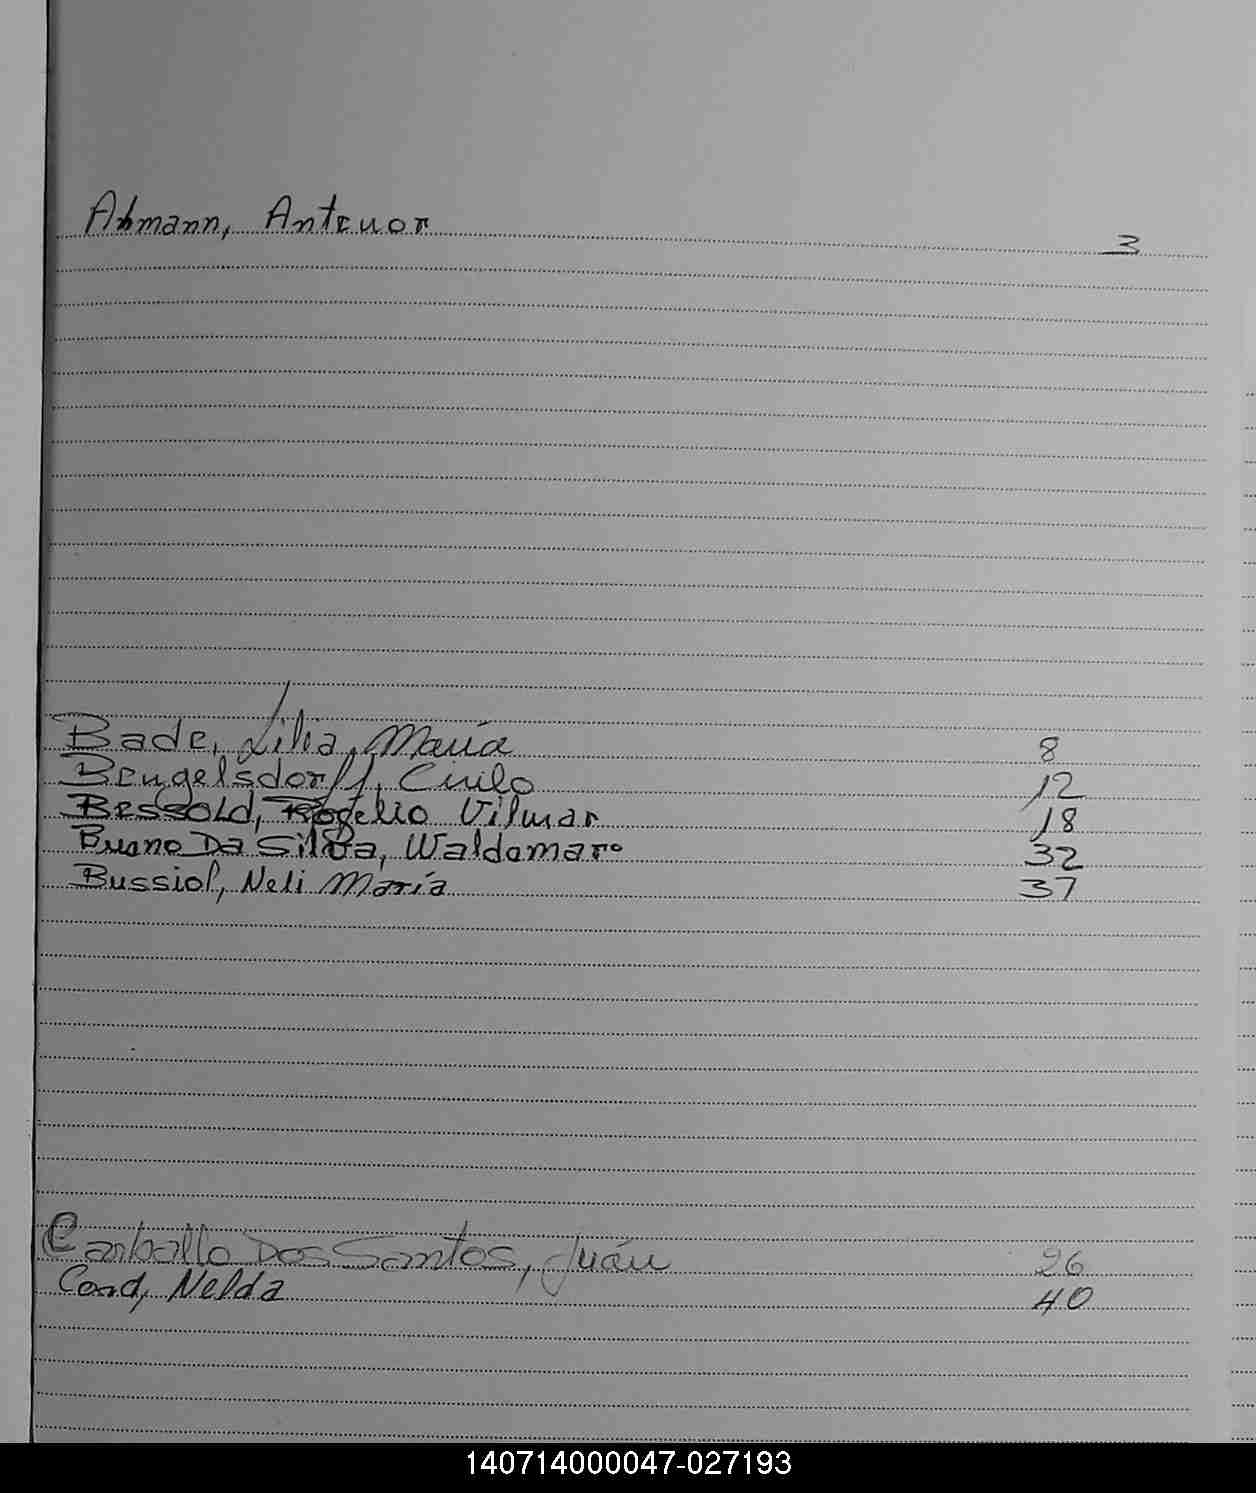 Ahmann, Antenor 3
Bade, Lilia, María 8
Bengelsdorff, Cirilo 12
Bessold, Rogelio Vilmar 18
Bueno Da Silva, Waldomaro 32
Bussiol, Neli María 37
Carballo Dos Santos, Juán 26
Cord, Nelda 40
140714000047-027193